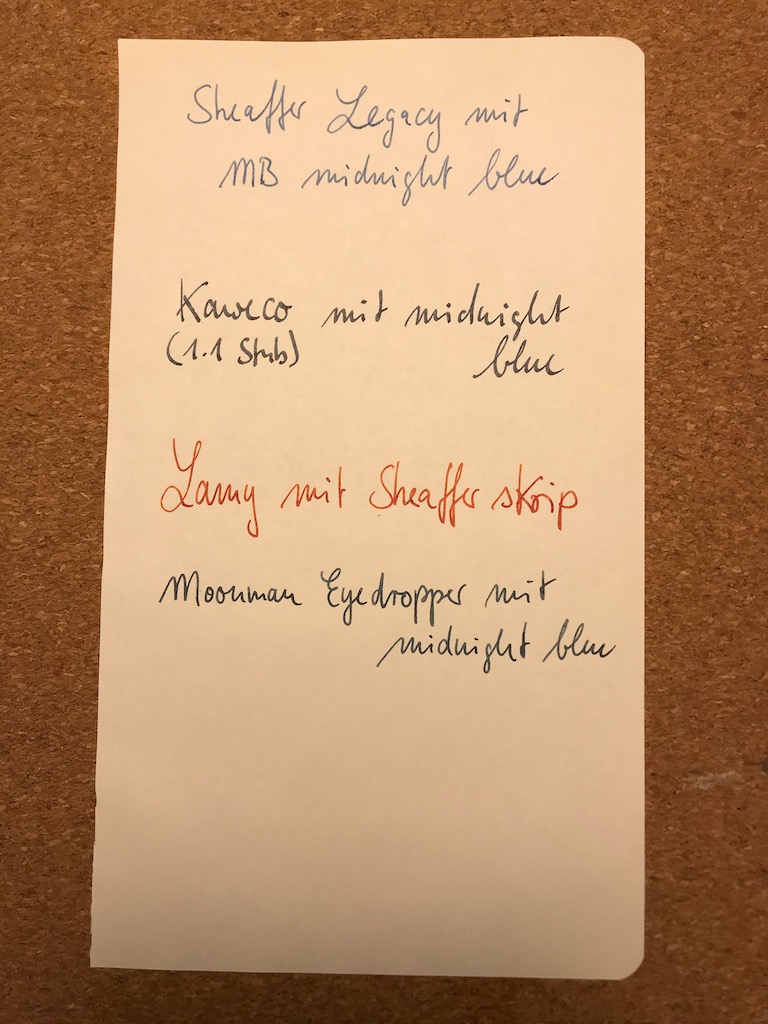 Sheaffer Legacy mit
MB midnight blue
Kaweco mit midnight
(1.1 Stub) blue
Lamy mit Sheaffer skrip
Moonman Eyedropper mit
midnight blue